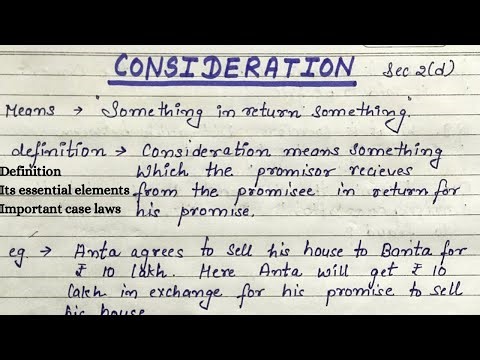 CONSIDERATION Sec 2(d)
Means → "Something in return something".
definition → Consideration means something
Definition which the promisor recieves
Its essential elements from the promisee in return for
Important case laws his promise.
eg. → Anta agrees to sell his house to Banta for
₹ 10 lakh. Here Anta will get ₹ 10
Lakh in exchange for his promise to sell
his house